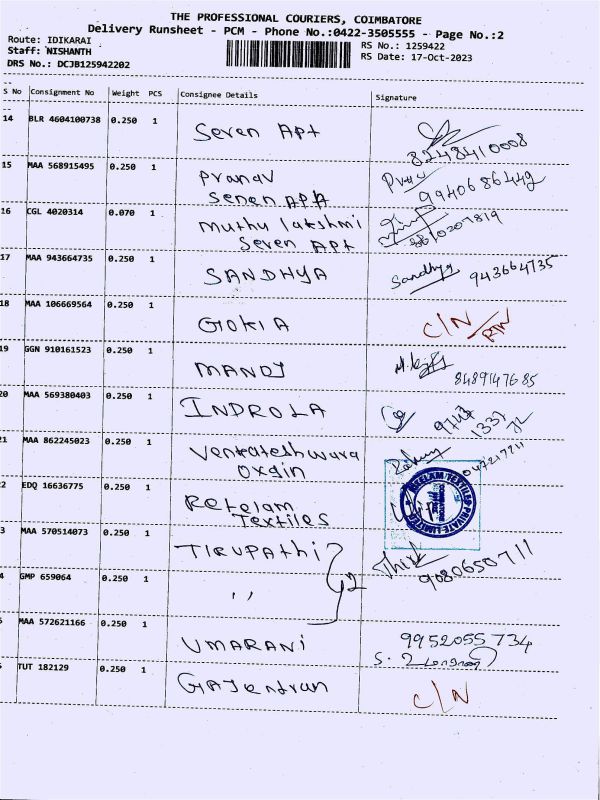 THE PROFESSIONAL COURIERS, COIMBATORE
Delivery Runsheet - PCM - Phone No.:0422-3505555 - Page No.:2
Route: IDIKARAI
Staff: NISHANTH
DRS No.: DCJB125942202
RS No.: 1259422
RS Date: 17-Oct-2023
S No Consignment No Weight PCS Consignee Details Signature
14 BLR 4604100738 0.250 1 Seven Apt 8248410008
15 MAA 568915495 0.250 1 Pranav
Seven APA 9940686449
16 CGL 4020314 0.070 1 Muthu lakshmi
Seven Apt 8610207819
17 MAA 943664735 0.250 1 SANDHYA Sandhya 943664735
18 MAA 106669564 0.250 1 GOKIA C/N RTN
19 GGN 910161523 0.250 1 MANOJ 8489147685
20 MAA 569380403 0.250 1 INDROLA 9747
1337
72
21 MAA 862245023 0.250 1 Venkateshwara
Oxgin
2 EDQ 16636775 0.250 1 Retelam
Textiles
RETELAM TEXTILES PRIVATE LIMITED
3 MAA 570514073 0.250 1 TIRUPAthi 9080650711
4 GMP 659064 0.250 1 ,, 2
MAA 572621166 0.250 1 UMARANi 9952055734
TUT 182129 0.250 1 GAJendran C/N